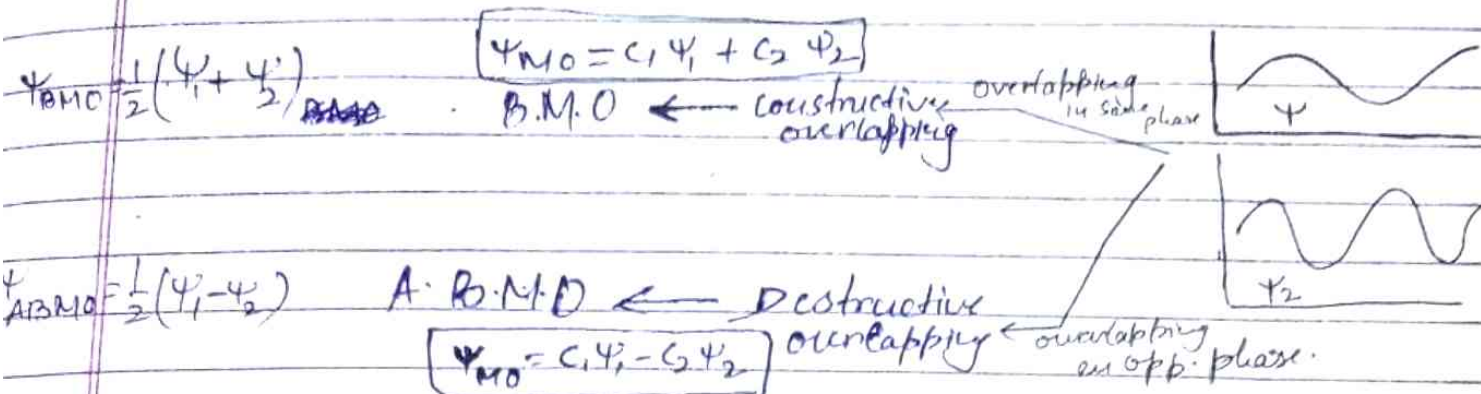 Ψ_MO = C₁Ψ₁ + C₂Ψ₂
Ψ_BMO = 1/2 (Ψ₁ + Ψ₂)
B.M.O ← constructive overlapping
overlapping in same phase
Ψ
Ψ₂
Ψ_ABMO = 1/2 (Ψ₁ - Ψ₂)
A.B.M.O ← Destructive overlapping ← overlapping in opp. phase.
Ψ_MO = C₁Ψ₁ - C₂Ψ₂